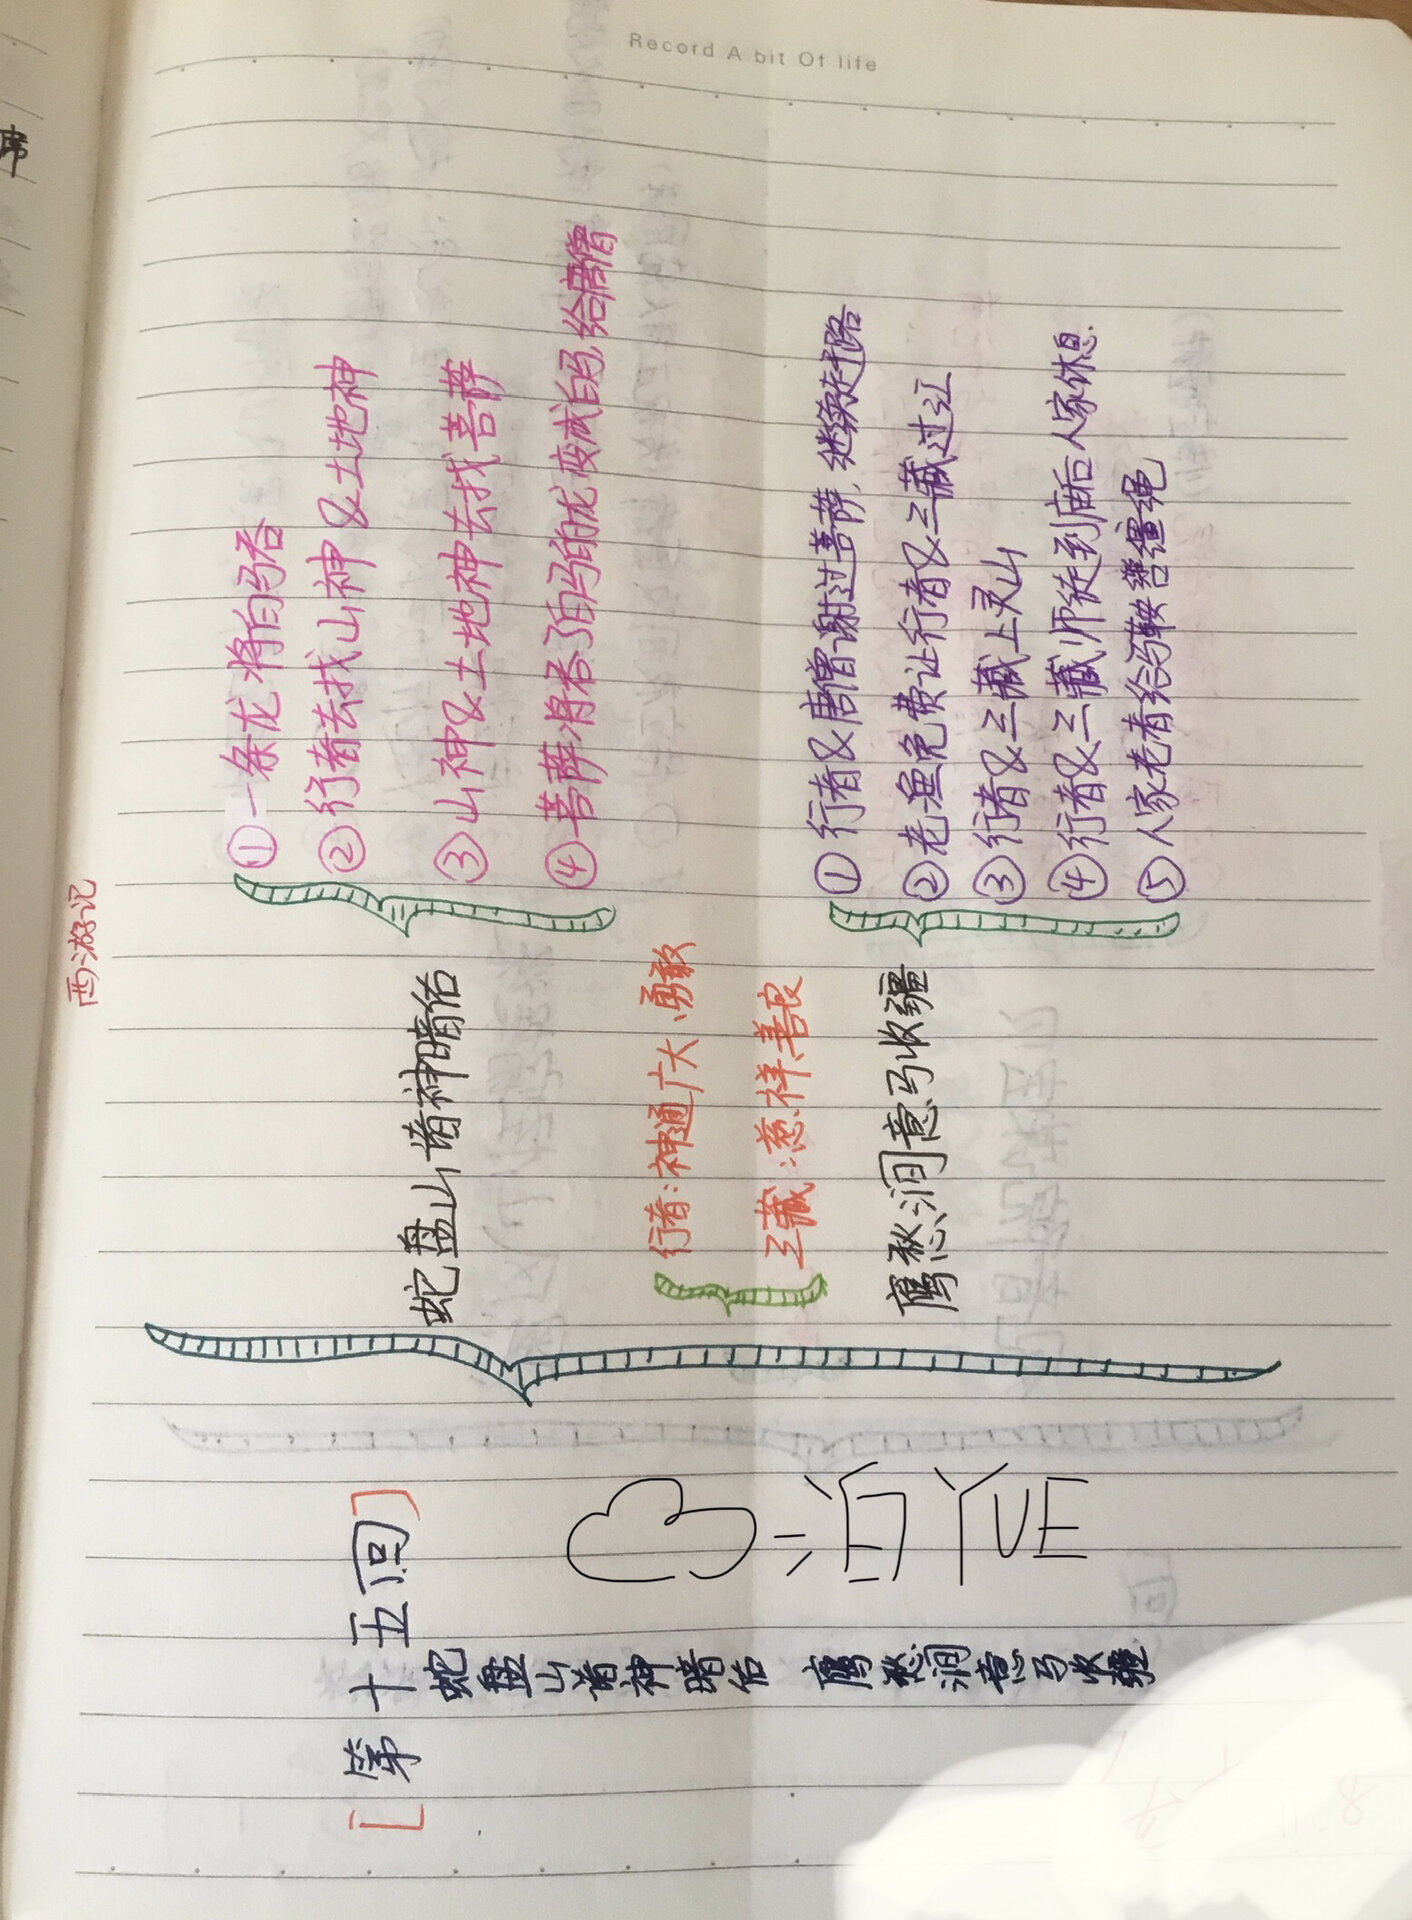 Record A bit Of life
西游记
[第十五回]
蛇盘山诸神暗佑 鹰愁涧意马收疆
蛇盘山诸神暗佑
①一条龙将白马吞
②行者去找山神&土地神
③山神&土地神去找菩萨
④菩萨将吞了白马的龙变成白马,给唐僧
行者:神通广大、勇敢
三藏:慈祥、善良
鹰愁涧意马收疆
①行者&唐僧谢过菩萨,继续赶路
②老渔免费让行者&三藏过江
③行者&三藏上灵山
④行者&三藏师徒到庙后人家休息.
⑤人家老者给马鞍辔缰绳
YUE
席